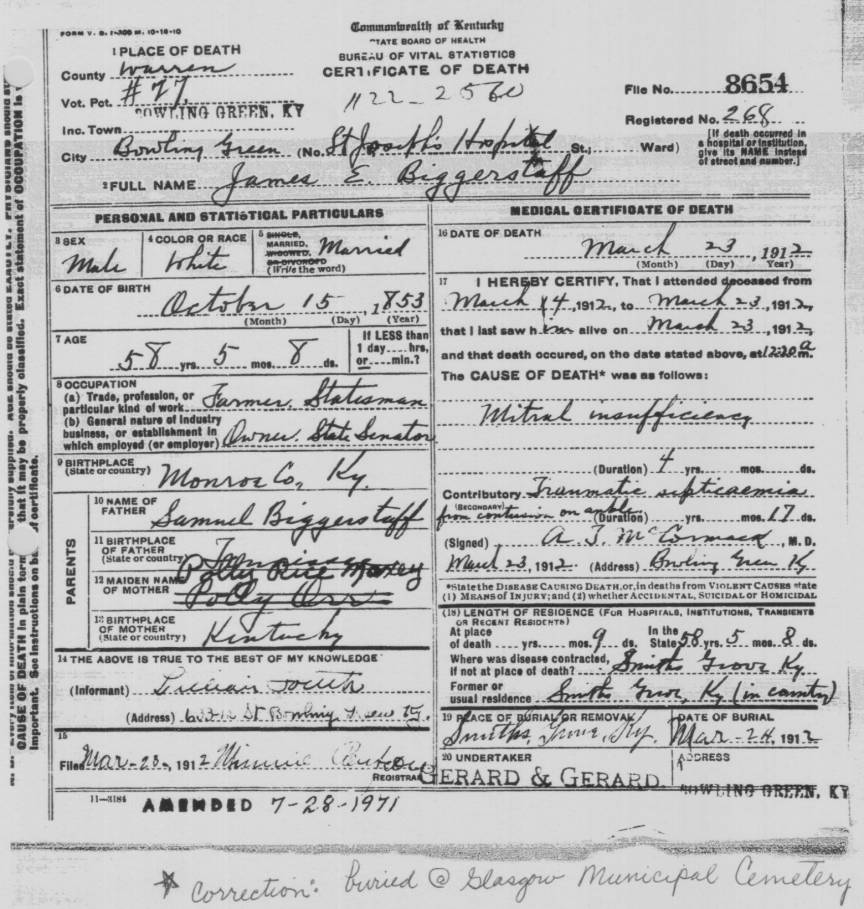 FORM V. S. 1-300 M. 10-16-10
Commonwealth of Kentucky
STATE BOARD OF HEALTH
BUREAU OF VITAL STATISTICS
CERTIFICATE OF DEATH
1 PLACE OF DEATH
County Warren
Vot. Pct. #77
BOWLING GREEN, KY
1122-2560
File No. 8654
Registered No. 268
Inc. Town
City Bowling Green (No. St Joseph's Hospital St.; Ward)
[If death occurred in a hospital or institution, give its NAME instead of street and number.]
2 FULL NAME James E. Biggerstaff
PERSONAL AND STATISTICAL PARTICULARS
3 SEX
Male
4 COLOR OR RACE
White
5 SINGLE, MARRIED, WIDOWED, OR DIVORCED (Write the word)
Married
6 DATE OF BIRTH
October 15, 1853
(Month) (Day) (Year)
7 AGE
58 yrs. 5 mos. 8 ds.
If LESS than 1 day.... hrs, or.... min.?
8 OCCUPATION
(a) Trade, profession, or particular kind of work Farmer. Statesman
(b) General nature of industry business, or establishment in which employed (or employer) Owner. State Senator
9 BIRTHPLACE (State or country) Monroe Co, Ky.
PARENTS
10 NAME OF FATHER
Samuel Biggerstaff
11 BIRTHPLACE OF FATHER (State or country)
12 MAIDEN NAME OF MOTHER
Polly Rice Maxey
Polly Orr
13 BIRTHPLACE OF MOTHER (State or country)
Kentucky
14 THE ABOVE IS TRUE TO THE BEST OF MY KNOWLEDGE
(Informant)
(Address) St Bowling Green Ky.
15
Filed Mar-28-, 1912 Minnie
REGISTRAR
11-3184
AMENDED 7-28-1971
MEDICAL CERTIFICATE OF DEATH
16 DATE OF DEATH
March 23, 1912
(Month) (Day) Year)
17 I HEREBY CERTIFY, That I attended deceased from
March 14, 1912, to March 23, 1912,
that I last saw him alive on March 23, 1912,
and that death occured, on the date stated above, at 12:20 a m.
The CAUSE OF DEATH* was as follows:
Mitral insufficiency
(Duration) 4 yrs. mos. ds.
Contributory Traumatic septicaemia
(SECONDARY)
from contusion on ankle (Duration) yrs. mos. 17 ds.
(Signed) A. T. McCormack, M. D.
March 23, 1912. (Address) Bowling Green Ky
*State the DISEASE CAUSING DEATH, or, in deaths from VIOLENT CAUSES state
(1) MEANS OF INJURY; and (2) whether ACCIDENTAL, SUICIDAL OR HOMICIDAL
(18) LENGTH OF RESIDENCE (FOR HOSPITALS, INSTITUTIONS, TRANSIENTS OR RECENT RESIDENTS)
At place of death yrs. mos. 9 ds. In the State 58 yrs. 5 mos. 8 ds.
Where was disease contracted, if not at place of death? Smiths Grove Ky
Former or usual residence Smiths Grove, Ky (in country)
19 PLACE OF BURIAL OR REMOVAL
Smiths Grove, Ky.
DATE OF BURIAL
Mar-24, 1912
20 UNDERTAKER
GERARD & GERARD.
ADDRESS
BOWLING GREEN, KY
correction: buried @ Glasgow Municipal Cemetery